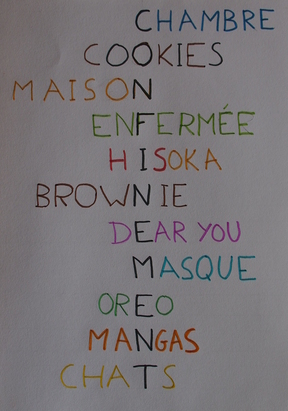 CHAMBRE
COOKIES
MAISON
ENFERMÉE
HISOKA
BROWNIE
DEAR YOU
MASQUE
OREO
MANGAS
CHATS